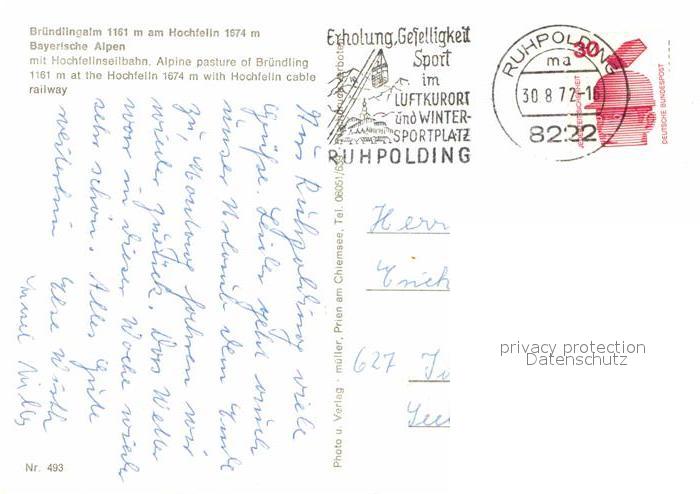 Bründlingalm 1161 m am Hochfelln 1674 m
Bayerische Alpen
mit Hochfellnseilbahn. Alpine pasture of Bründling
1161 m at the Hochfelln 1674 m with Hochfelln cable
railway
Erholung, Geselligkeit
Sport
im
LUFTKURORT
und WINTER-
SPORTPLATZ
RUHPOLDING
RUHPOLDING
ma
30.8.72-16
8222
30
JEDERZEIT SICHERHEIT
DEUTSCHE BUNDESPOST
Aus Ruhpolding viele
Grüße. Leider geht auch
unser Urlaub dem Ende
zu. Montag fahren wir
wieder zurück. Das Wetter
war in dieser Woche wieder
sehr schön. Alles Gute
weiterhin
Photo u. Verlag · müller, Prien am Chiemsee, Tel. 08051/
Herr
Erich
627
privacy protection
Datenschutz
Nr. 493